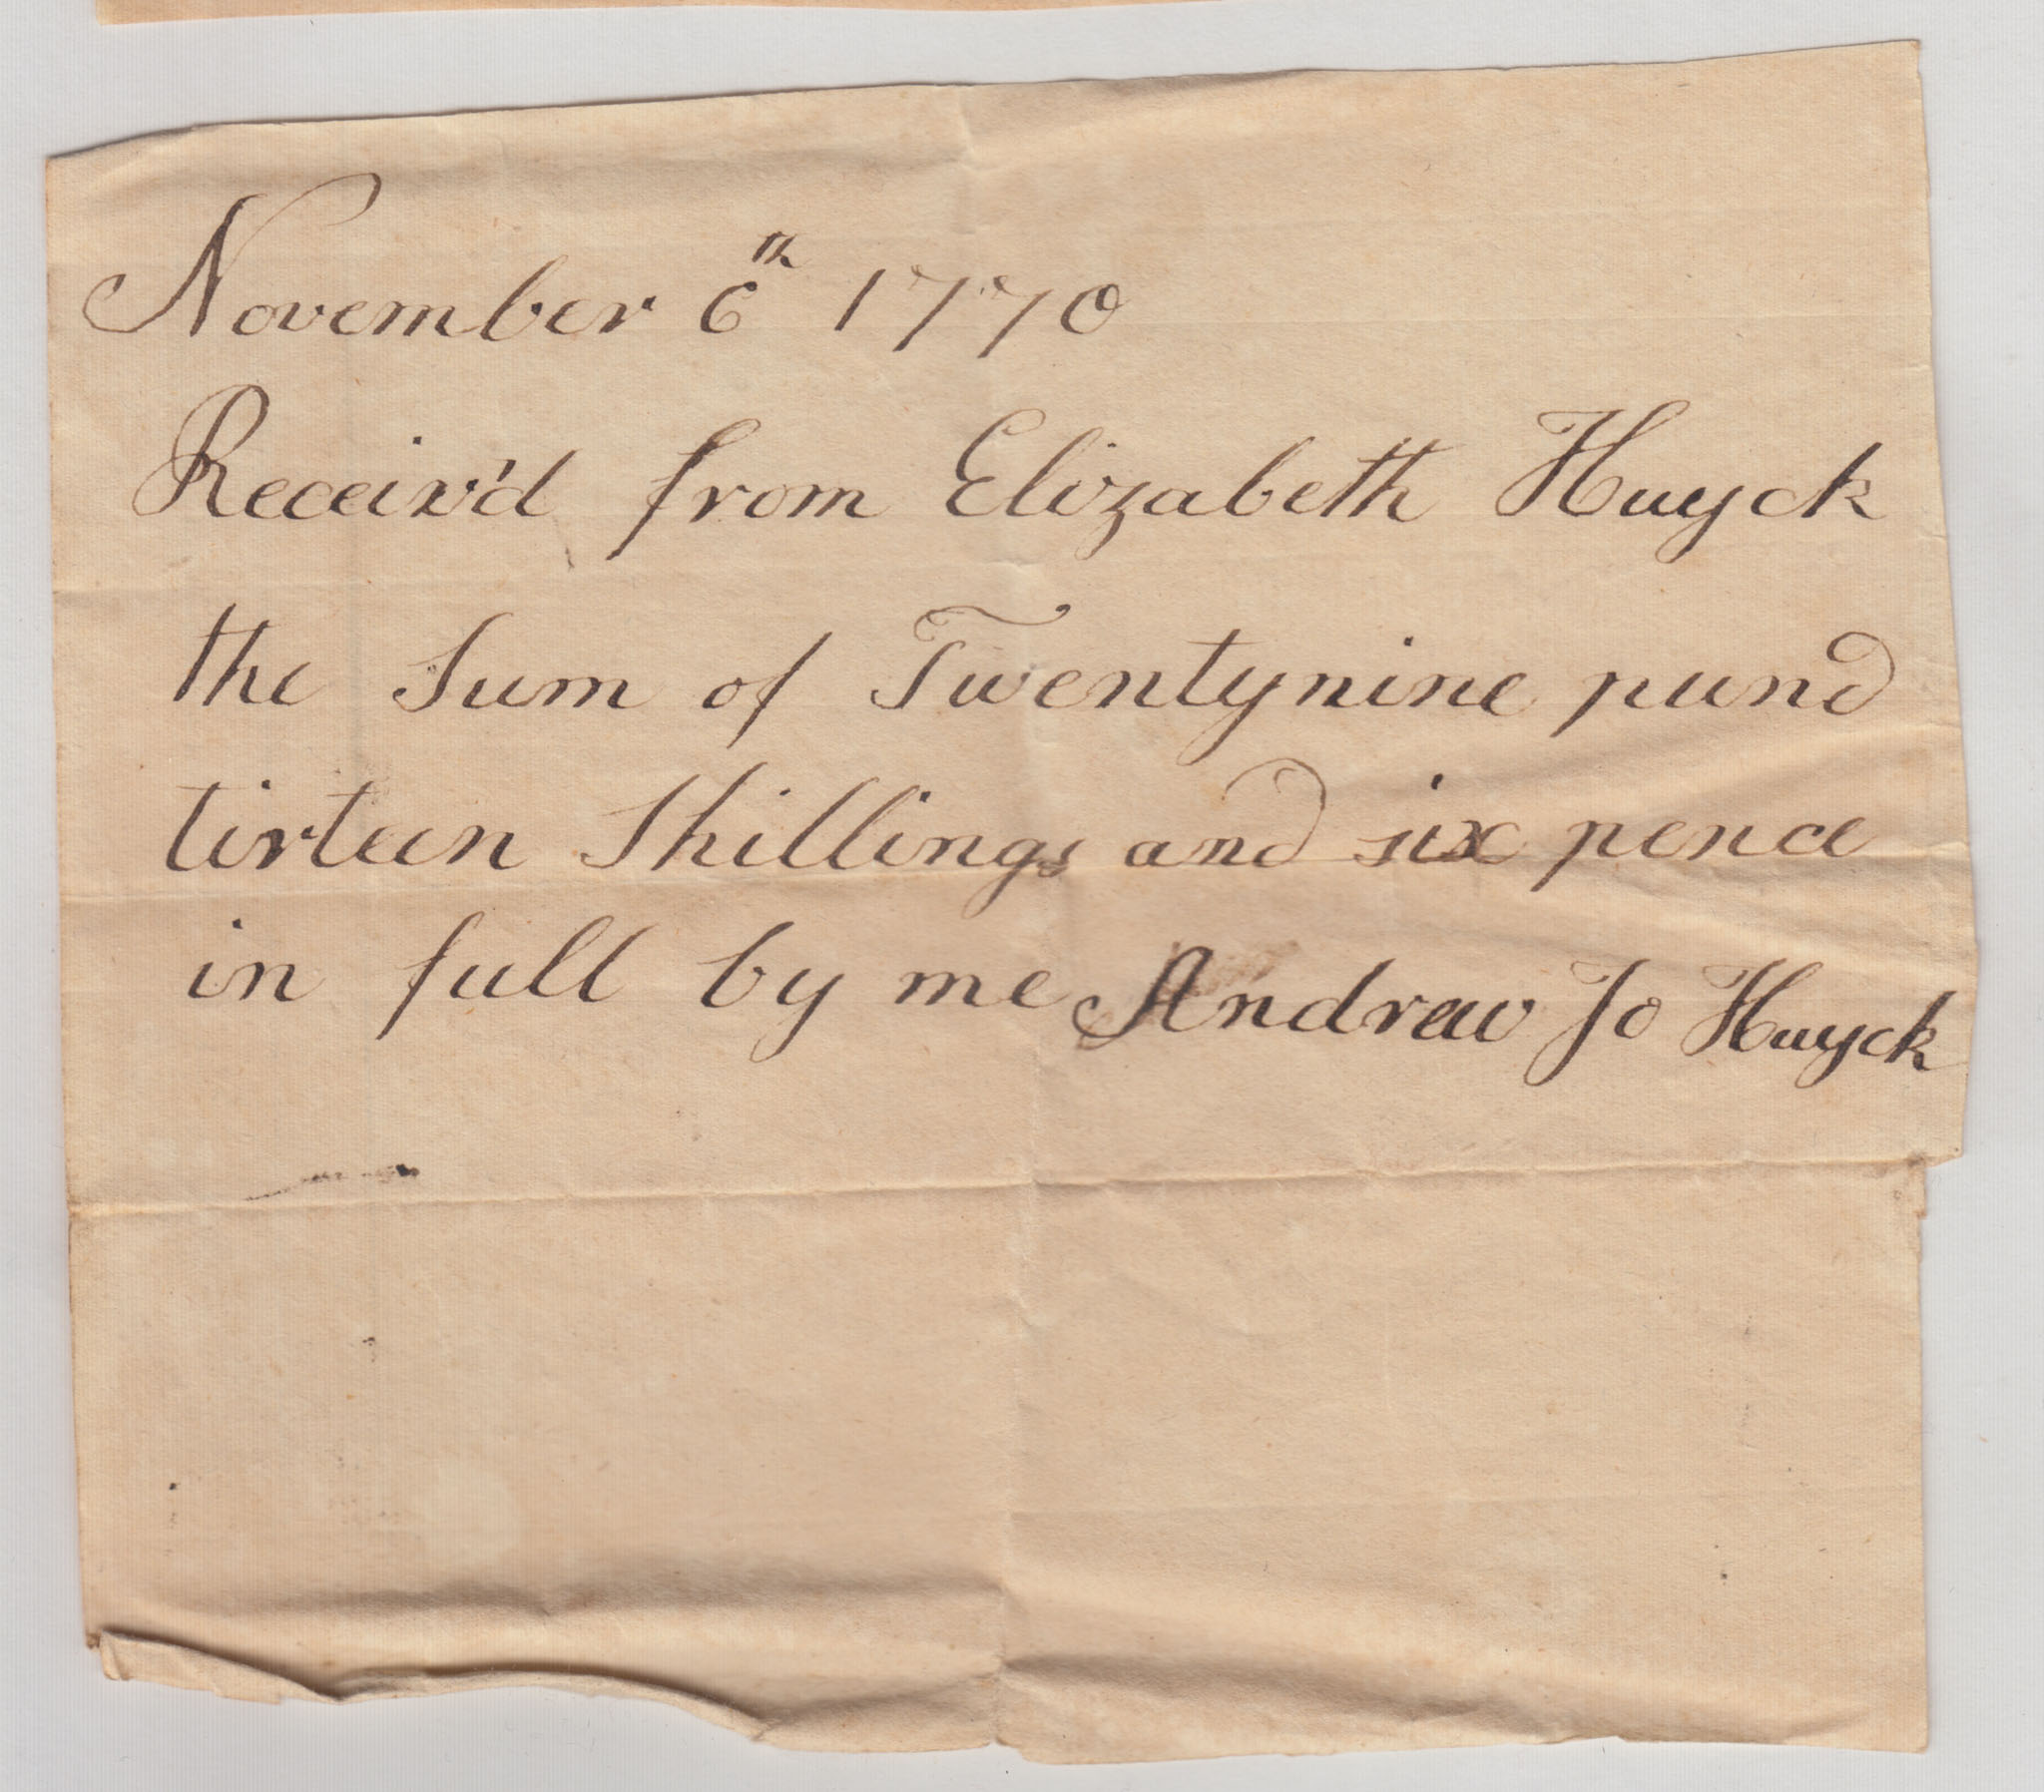 November 6th 1770
Receiv'd from Elizabeth Huyck
the Sum of Twentynine pund
tirteen Shillings and six pence
in full by me Andrew Jo Huyck